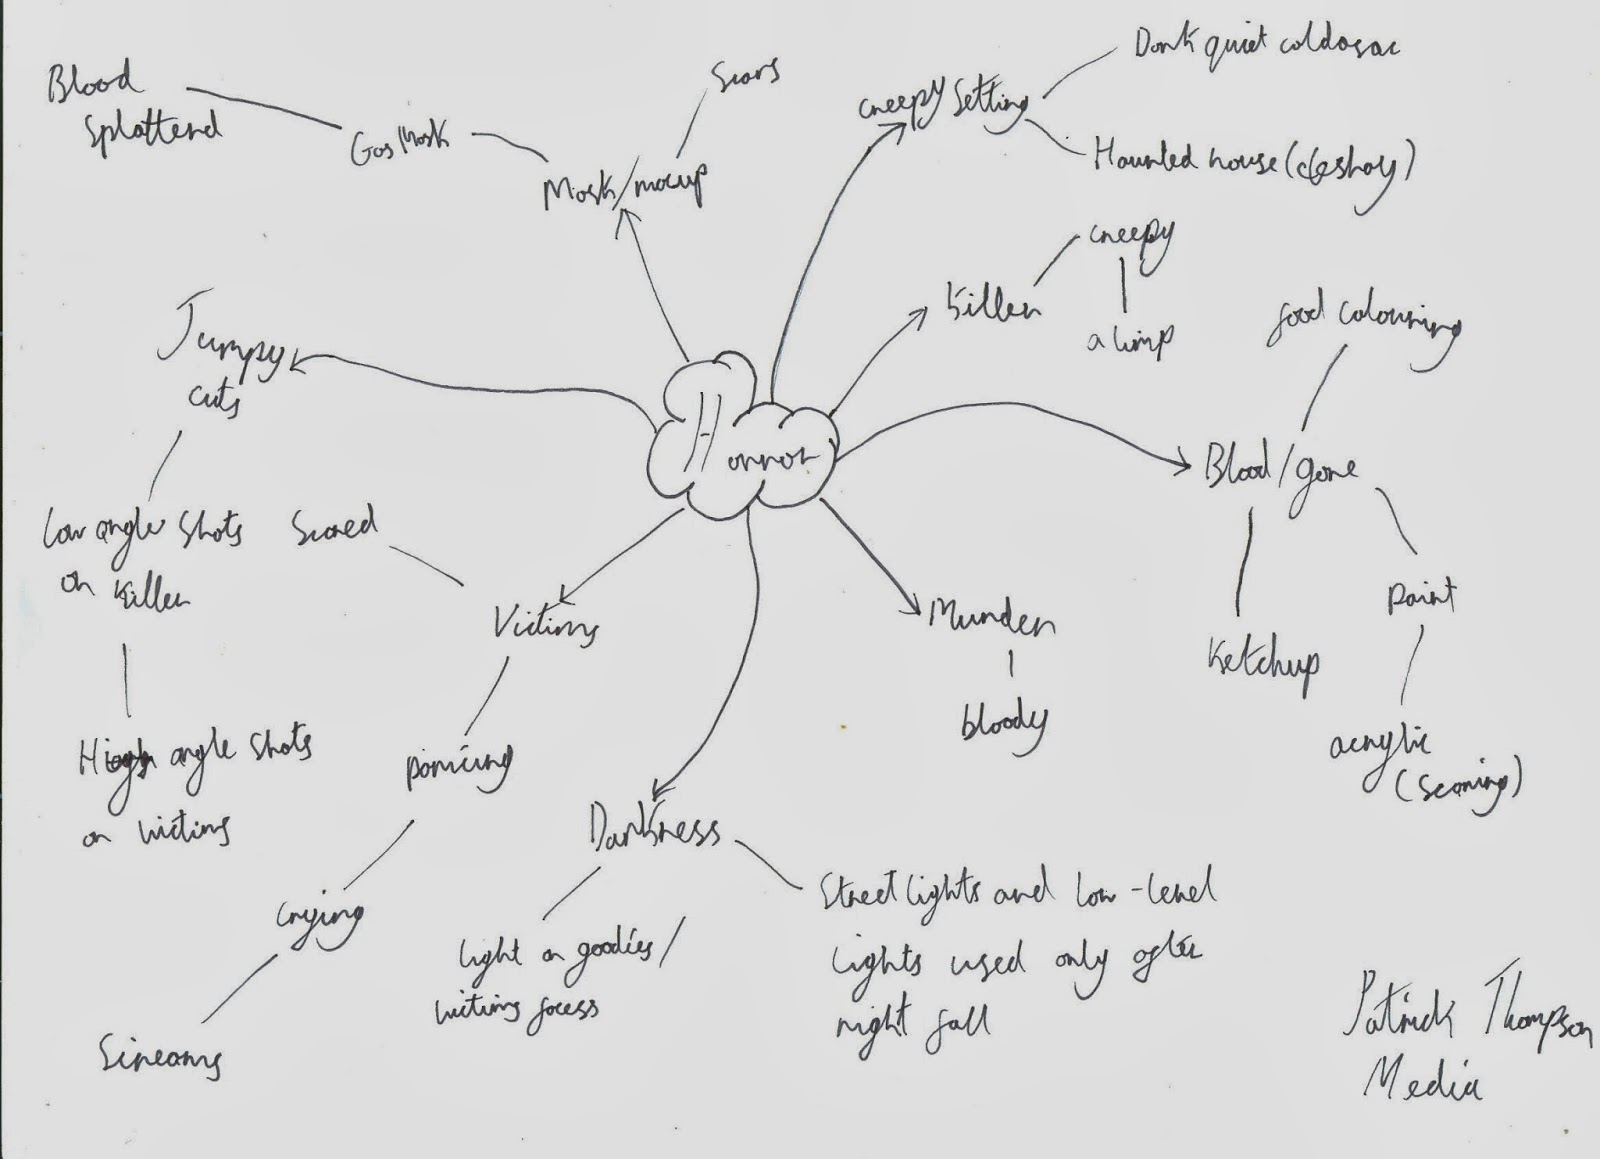 Horror
Mask/macup
Scars
Gas Mask
Blood
Splatterd
creepy Setting
Dark quiet coldasac
Haunted house
Killer
creepy
a limp
Blood/gore
food colouring
Ketchup
paint
acrylic
Murder
bloody
Darkness
Street lights and low-level
lights used only after
night fall
light on goodies/
victims facess
Victims
Scared
panicing
crying
Screams
Jumpy
cuts
low angle shots
on killer
High angle shots
on victims
Patrick Thompson
Media